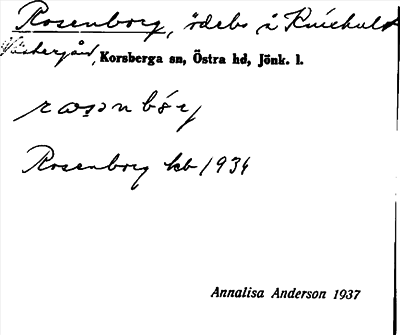 Rosenborg, ödebs å Knichult
Västergård, Korsberga sn, Östra hd, Jönk. l.
Rosenborg kb 1934
Annalisa Anderson 1937